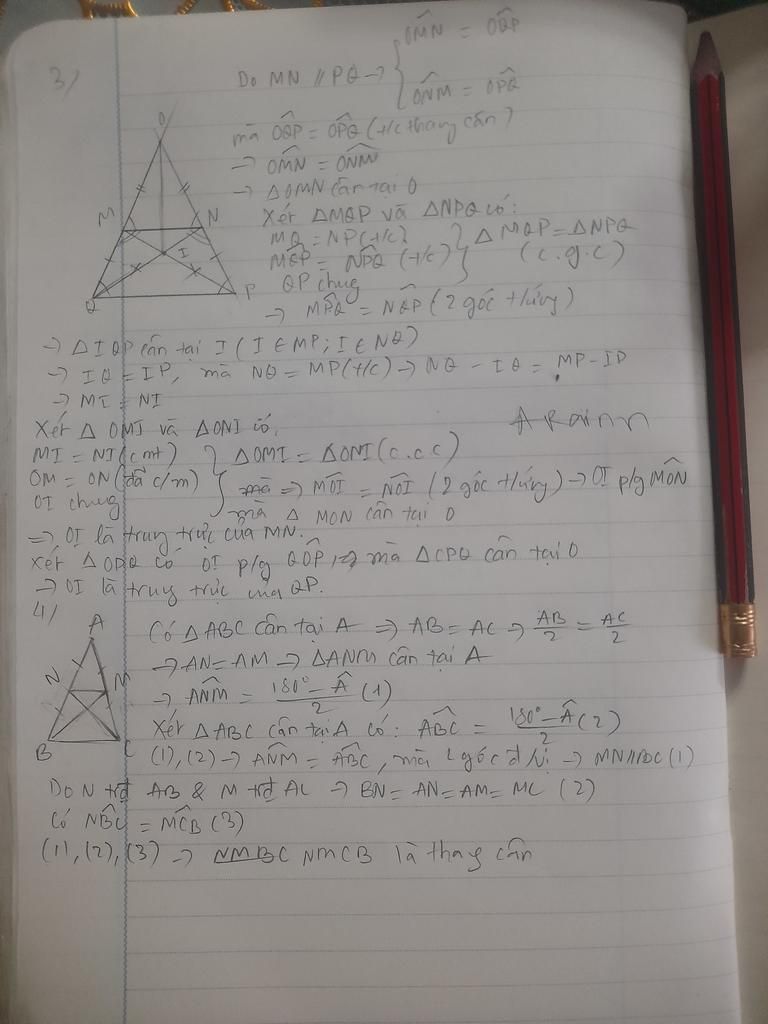 3/
O
M
N
I
Q
P
Do MN // PQ → { OM̂N = OQ̂P
ON̂M = OP̂Q
mà OQ̂P = OP̂Q (t/c thang cân)
→ OM̂N = ON̂M
→ ΔOMN cân tại O
Xét ΔMQP và ΔNPQ có:
MQ = NP (t/c)
MQ̂P = NP̂Q (t/c) } ΔMQP = ΔNPQ
QP chung (c.g.c)
→ MP̂Q = NQ̂P (2 góc t/ứng)
→ ΔIQP cân tại I (I ∈ MP; I ∈ NQ)
→ IQ = IP, mà NQ = MP (t/c) → NQ - IQ = MP - IP
→ MI = NI
ARainn
Xét Δ OMI và ΔONI có,
MI = NI (cmt) } ΔOMI = ΔONI (c.c.c)
OM = ON (đã c/m) mà => MÔI = NÔI (2 góc t/ứng) → OI p/g MÔN
OI chung mà Δ MON cân tại O
=> OI là trung trực của MN.
Xét ΔOPQ có OI p/g QÔP, => mà ΔCPQ cân tại O
→ OI là trung trực của QP.
4/
A
N
M
B
C
Có ΔABC cân tại A => AB = AC → AB/2 = AC/2
→ AN = AM → ΔANM cân tại A
→ AN̂M = (180° - Â)/2 (1)
Xét ΔABC cân tại A có: AB̂C = (180° - Â)/2 (2)
(1), (2) → AN̂M = AB̂C, mà 2 góc đ/vị → MN//BC (1)
Do N trđ AB & M trđ AC → BN = AN = AM = MC (2)
Có NB̂C = MĈB (3)
(1), (2), (3) → NMBC NMCB là thang cân